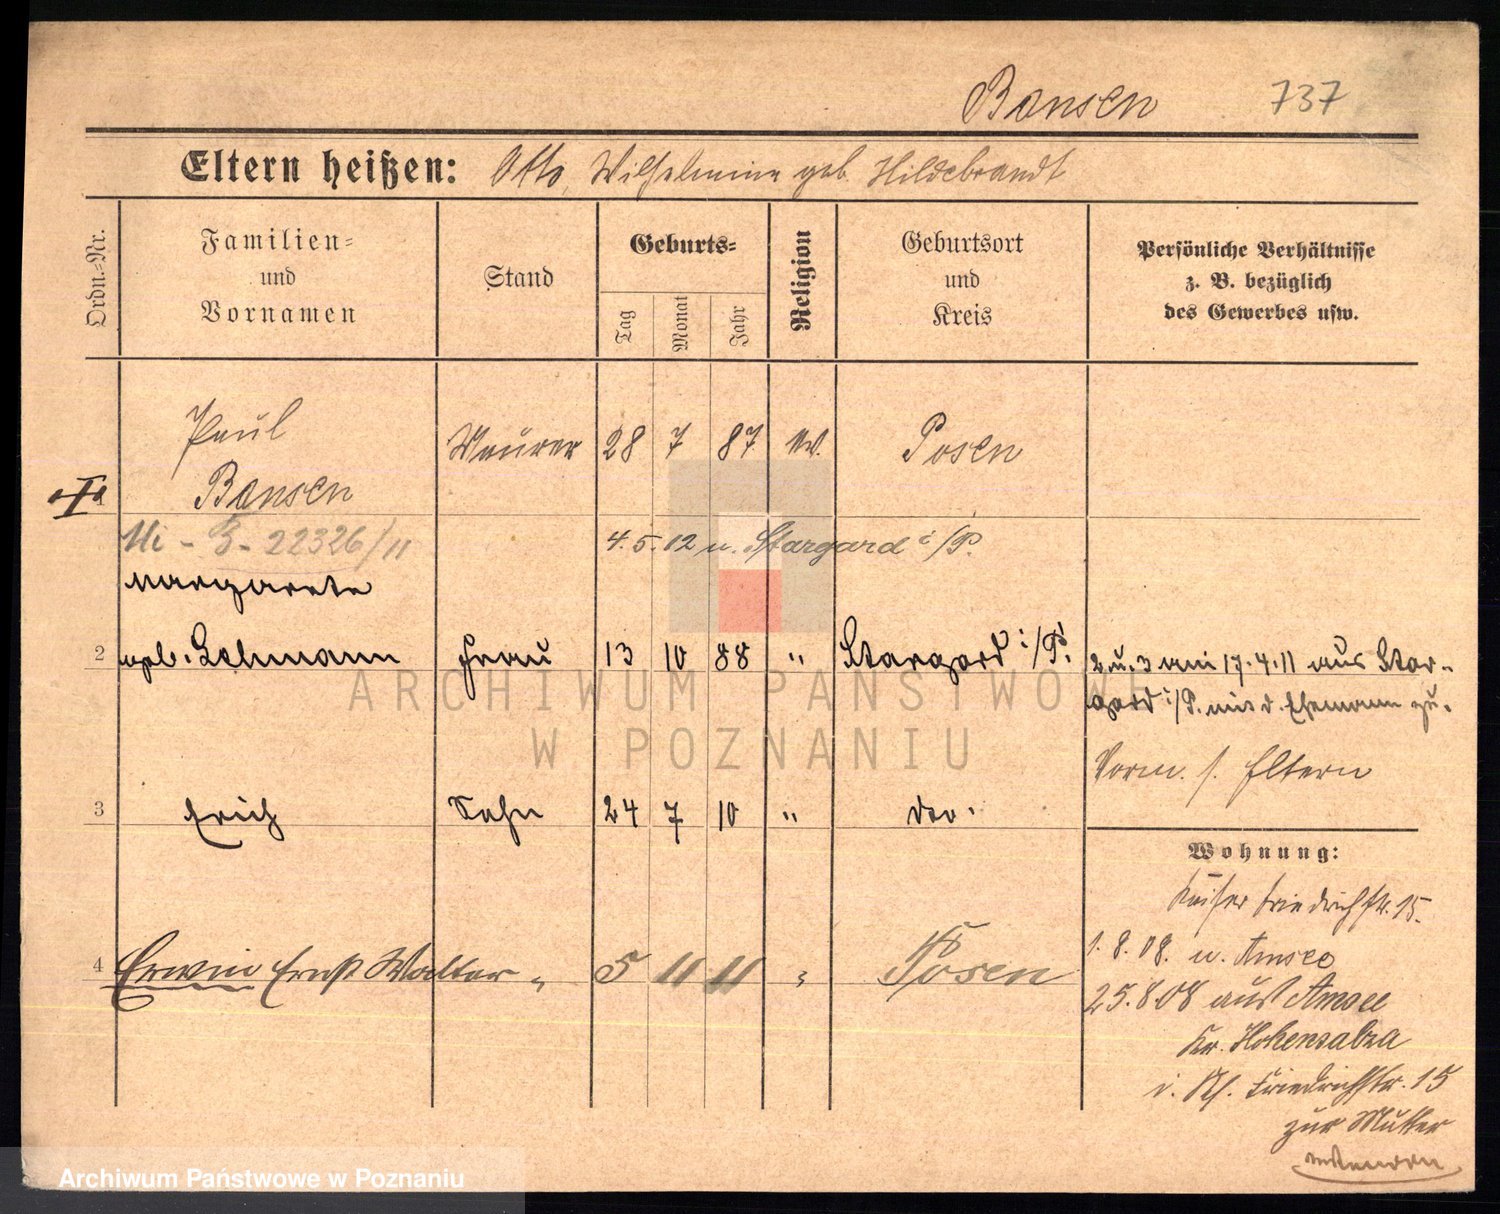 Bansen 737
Eltern heißen: Otto, Wilhelmine geb. Hildebrandt
Ordn.=Nr.
Familien=
und
Vornamen
Stand
Geburts=
Tag
Monat
Jahr
Religion
Geburtsort
und
Kreis
Persönliche Verhältnisse
z. B. bezüglich
des Gewerbes usw.
Paul
Bansen Maurer 28 7 87 ev. Posen
I
22326/11 4.5.12 n. Stargard i/P.
Margarete
2 geb. Lehmann Frau 13 10 88 " Stargard i/P.
2 u. 3 am 17.4.11 aus Star-
gard i/P. mit d. Ehemann zu.
Vorm. s. Eltern
3 Erich Sohn 24 7 10 " do.
4 Erwin Ernst Walter " 5 11 11 " Posen
Wohnung:
Kaiser Friedrichstr. 15.
1.8.08. n. Amsee
25.8.08 aus Amsee
Kr. Hohensalza
Friedrichstr. 15
zur Mutter
ARCHIWUM PAŃSTWOWE
W POZNANIU
Archiwum Państwowe w Poznaniu